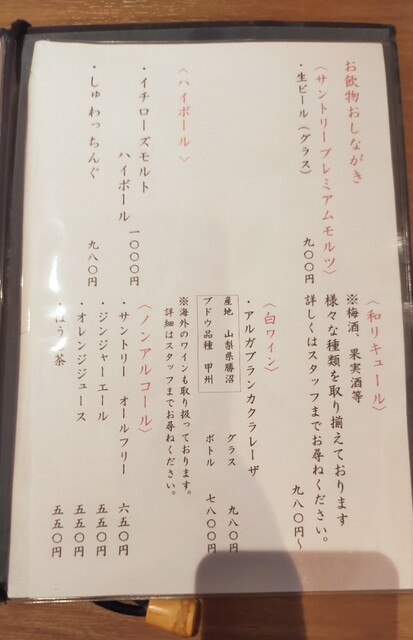 お飲物おしながき
〈サントリープレミアムモルツ〉
・生ビール（グラス）
九〇〇円
〈ハイボール〉
・イチローズモルト
ハイボール
一〇〇〇円
・しゅわっちんぐ
九八〇円
〈和リキュール〉
※梅酒 果実酒等
様々な種類を取り揃えております
詳しくはスタッフまでお尋ねください。
九八〇円〜
〈白ワイン〉
・アルガブランカクラレーザ
グラス 九八〇円
産地 山梨県勝沼
ブドウ品種 甲州
ボトル 七八〇〇円
※海外のワインも取り扱っております。
詳細はスタッフまでお尋ねください。
〈ノンアルコール〉
・サントリー オールフリー
六五〇円
・ジンジャーエール
五五〇円
・オレンジジュース
五五〇円
・ほうじ茶
五五〇円